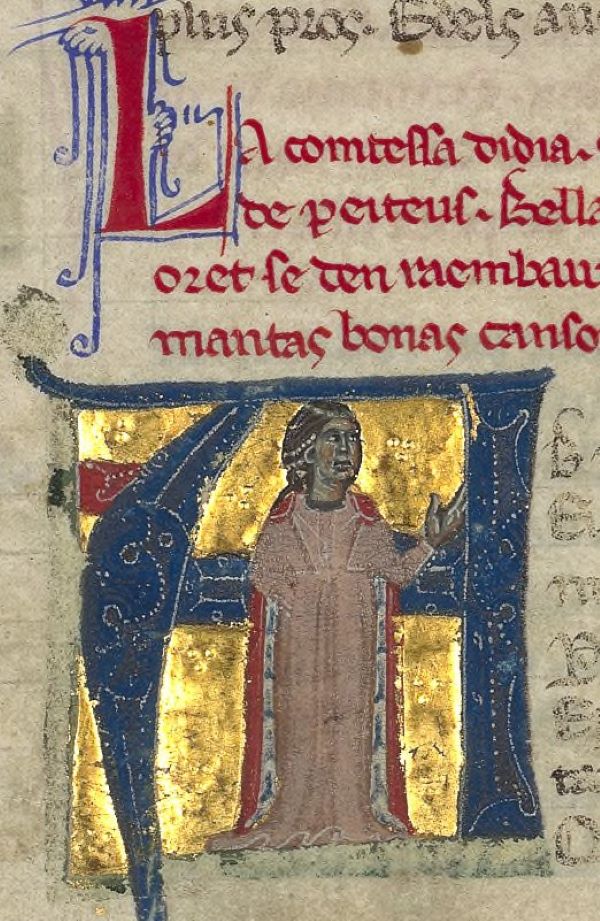 plus pros. Edels au
La comtessa didia.
de peiteus. Bella
oret se den raembau
mantas bonas canso
A